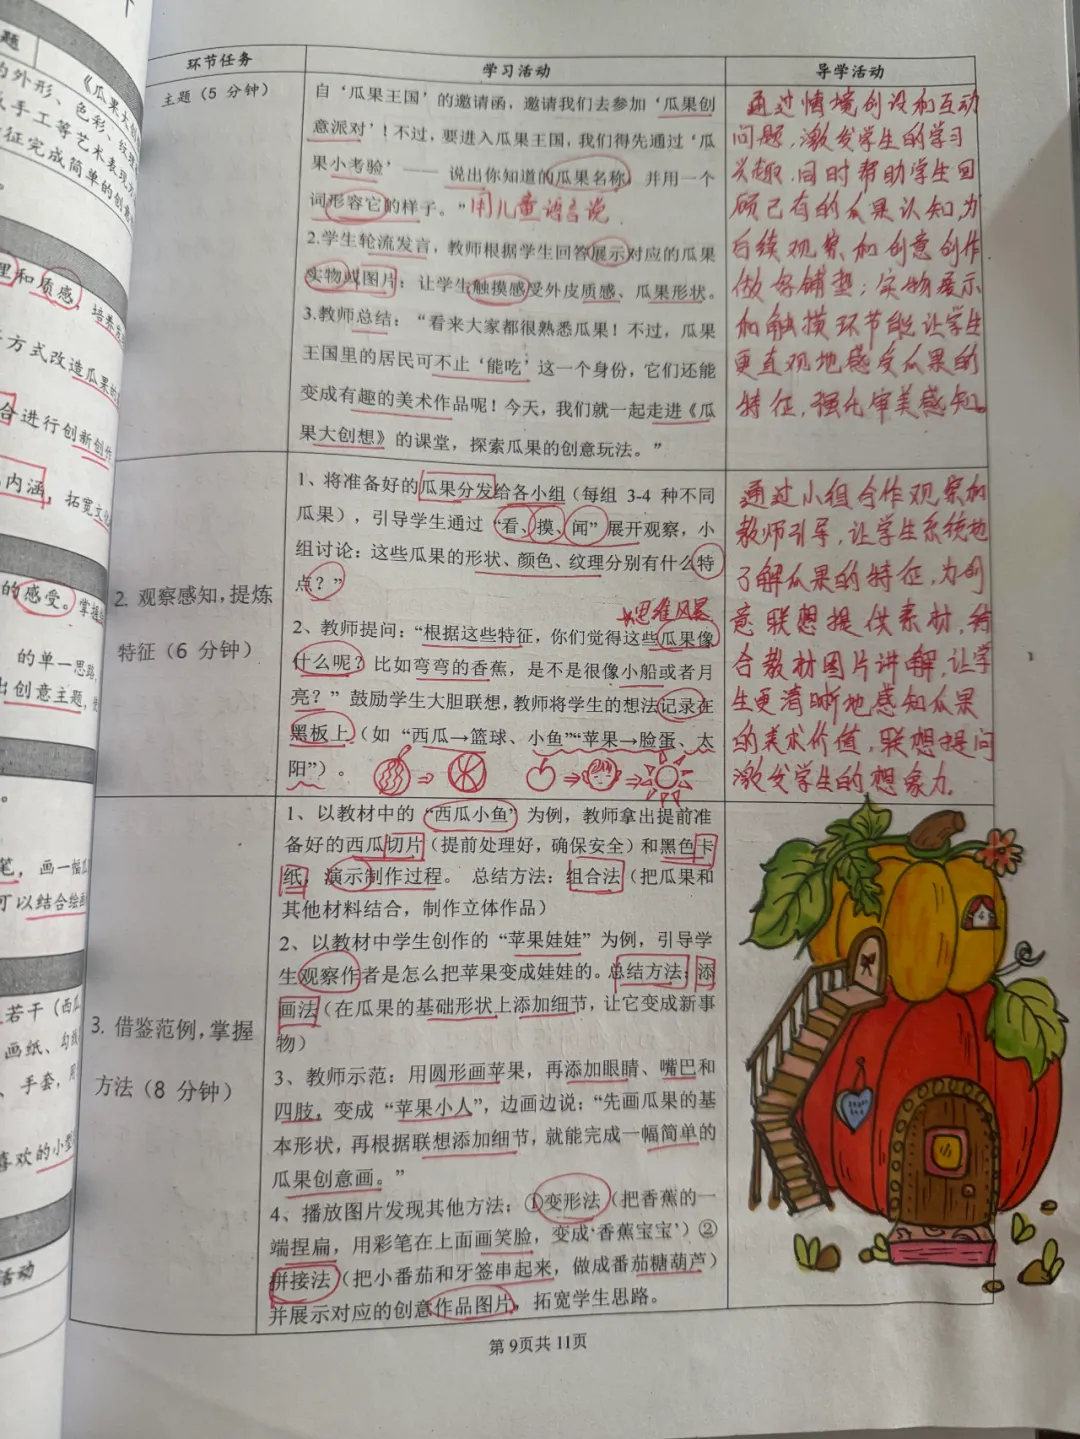 环节任务
学习活动
导学活动
主题（5 分钟）
自‘瓜果王国’的邀请函，邀请我们去参加‘瓜果创
意派对’！不过，要进入瓜果王国，我们得先通过‘瓜
果小考验’—— 说出你知道的瓜果名称，并用一个
词形容它的样子。”用儿童语言说
2.学生轮流发言，教师根据学生回答展示对应的瓜果
实物或图片；让学生触摸感受外皮质感、瓜果形状。
3.教师总结：“看来大家都很熟悉瓜果！不过，瓜果
王国里的居民可不止‘能吃’这一个身份，它们还能
变成有趣的美术作品呢！今天，我们就一起走进《瓜
果大创想》的课堂，探索瓜果的创意玩法。”
通过情境创设和互动
问题，激发学生的学习
兴趣，同时帮助学生回
顾已有的瓜果认知，为
后续观察和创意创作
做好铺垫；实物展示
和触摸环节能让学生
更直观地感受瓜果的
特征，强化审美感知。
2. 观察感知，提炼
特征（6 分钟）
1、将准备好的瓜果分发给各小组（每组 3-4 种不同
瓜果），引导学生通过“看、摸、闻”展开观察，小
组讨论：这些瓜果的形状、颜色、纹理分别有什么特
点？”
思维风暴
2、教师提问：“根据这些特征，你们觉得这些瓜果像
什么呢？比如弯弯的香蕉，是不是很像小船或者月
亮？”鼓励学生大胆联想，教师将学生的想法记录在
黑板上（如“西瓜→篮球、小鱼”“苹果→脸蛋、太
阳”）。
通过小组合作观察和
教师引导，让学生系统地
了解瓜果的特征，为创
意联想提供素材，结
合教材图片讲解，让学
生更清晰地感知瓜果
的美术价值，联想提问
激发学生的想象力。
3. 借鉴范例，掌握
方法（8 分钟）
1、以教材中的“西瓜小鱼”为例，教师拿出提前准
备好的西瓜切片（提前处理好，确保安全）和黑色卡
纸，演示制作过程。 总结方法：组合法（把瓜果和
其他材料结合，制作立体作品）
2、以教材中学生创作的“苹果娃娃”为例，引导学
生观察作者是怎么把苹果变成娃娃的。总结方法：添
画法（在瓜果的基础形状上添加细节，让它变成新事
物）
3、教师示范：用圆形画苹果，再添加眼睛、嘴巴和
四肢，变成“苹果小人”，边画边说：“先画瓜果的基
本形状，再根据联想添加细节，就能完成一幅简单的
瓜果创意画。”
4、播放图片发现其他方法：①变形法（把香蕉的一
端捏扁，用彩笔在上面画笑脸，变成‘香蕉宝宝’）②
拼接法（把小番茄和牙签串起来，做成番茄糖葫芦）
并展示对应的创意作品图片，拓宽学生思路。
第 9页共 11页